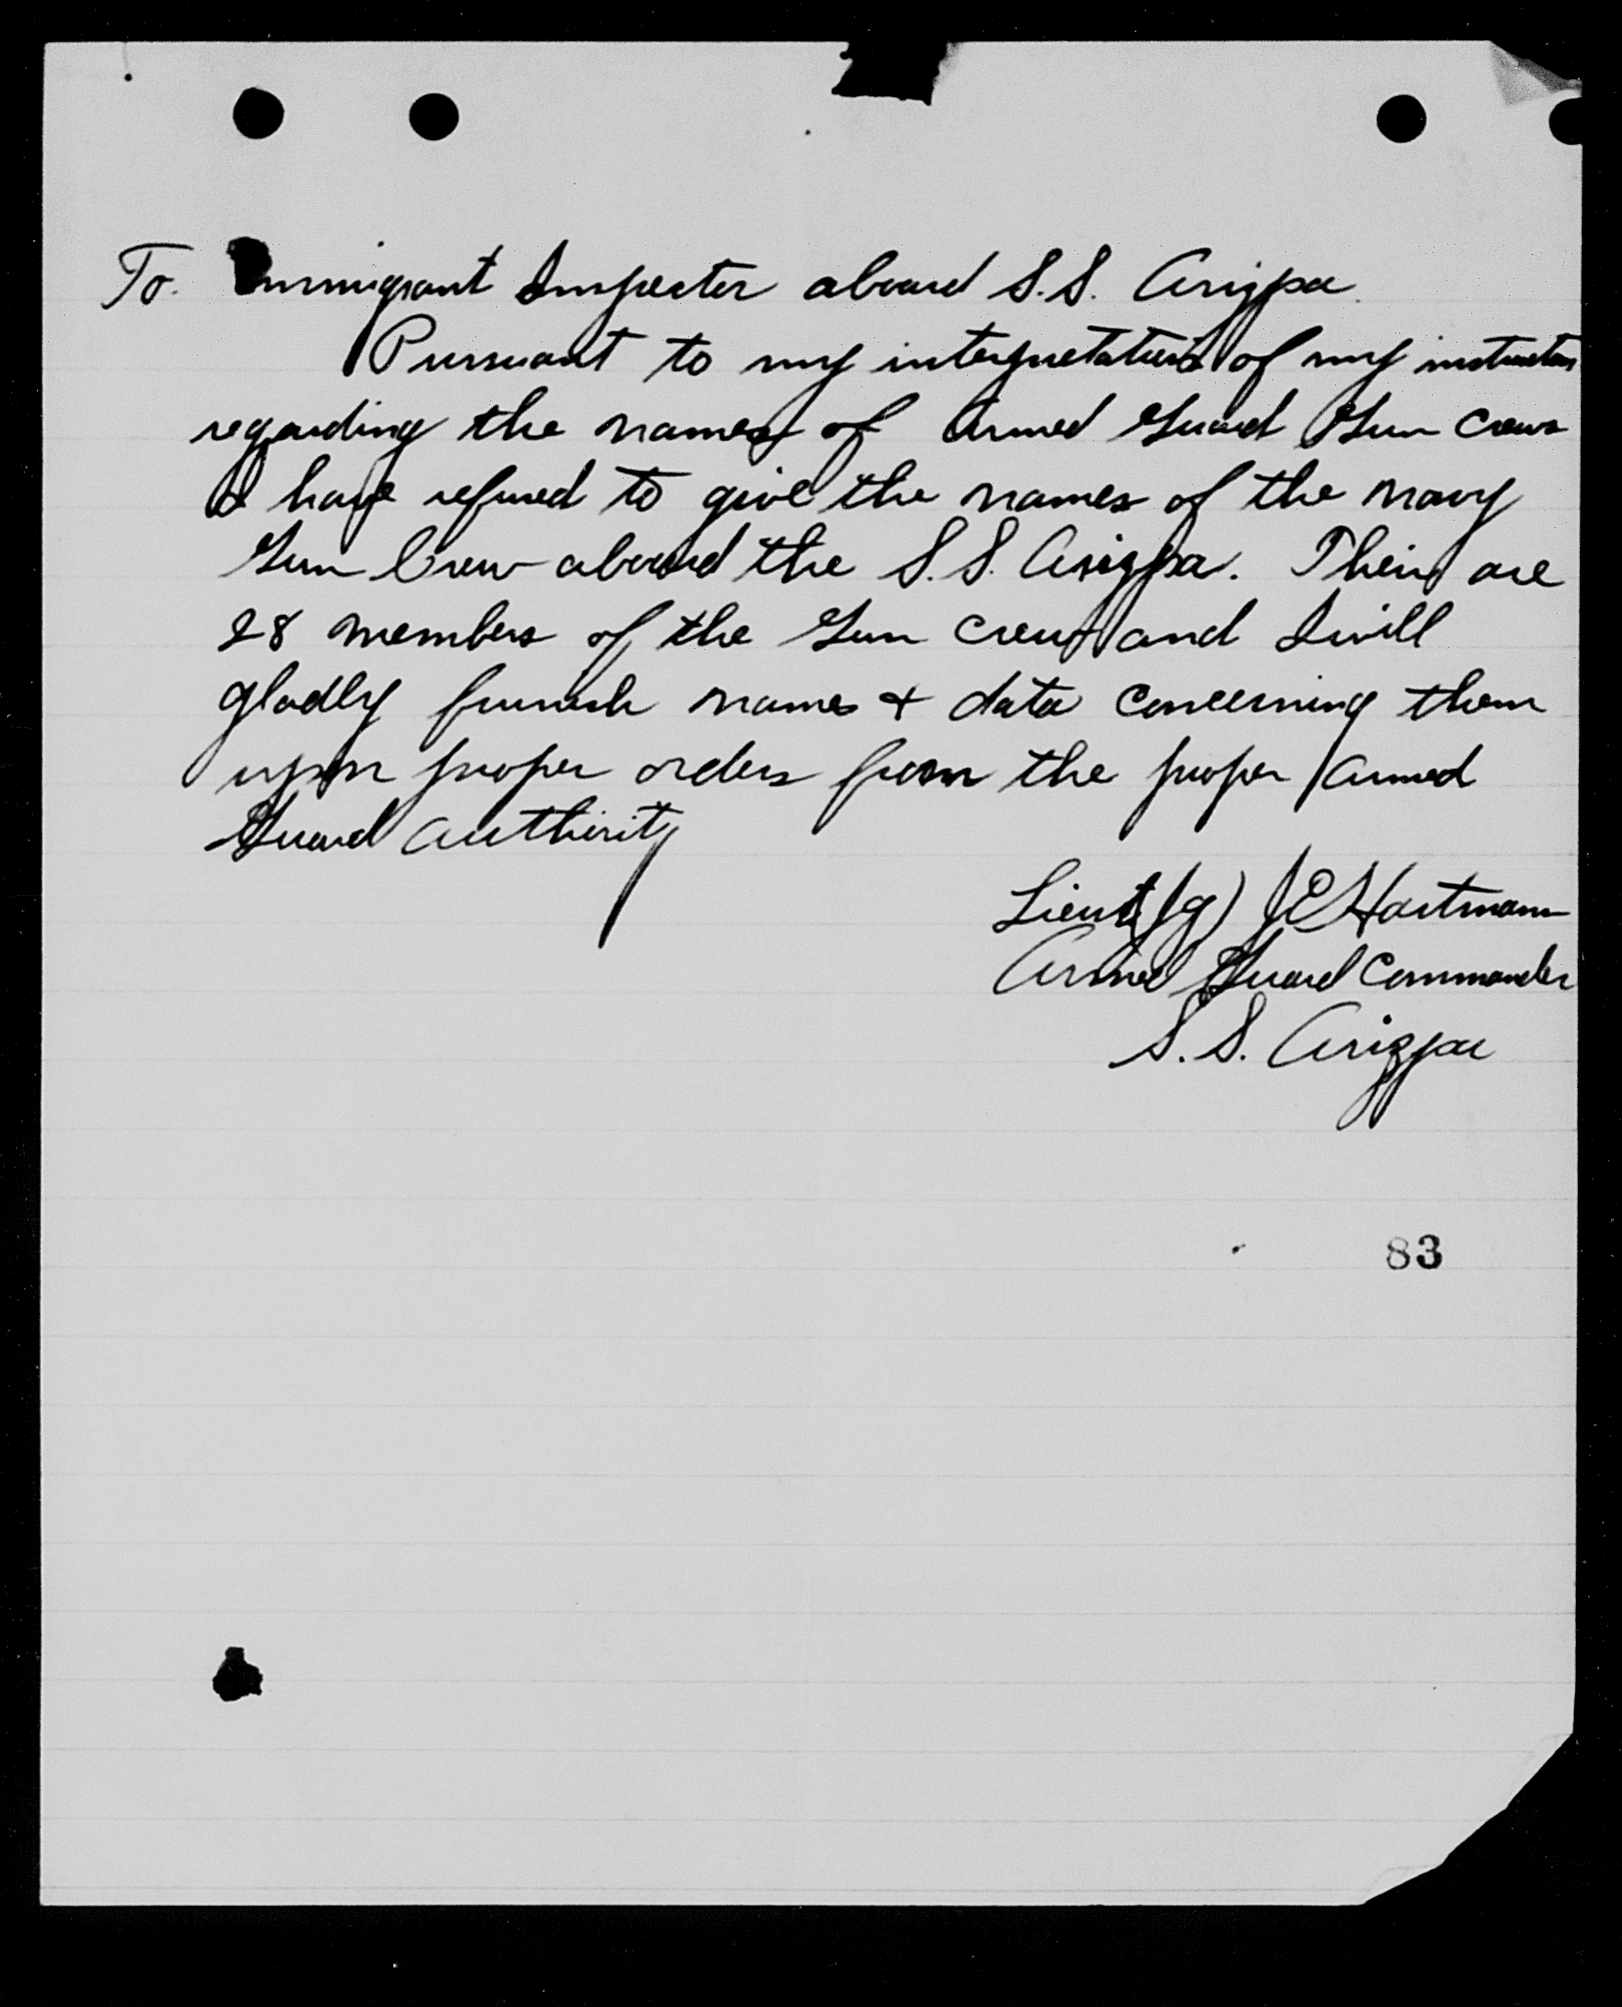 To. Immigrant Inspector aboard S.S. Arizpa
Pursuant to my interpretation of my instructions
regarding the names of Armed Guard Gun Crews
I have refused to give the names of the Navy
Gun Crew aboard the S.S. Arizpa. Their are
28 members of the Gun crew and I will
gladly furnish names + data concerning them
upon proper orders from the proper Armed
Guard Authority
Lieut (jg) J E Hartmann
Armed Guard Commander
S.S. Arizpa
83